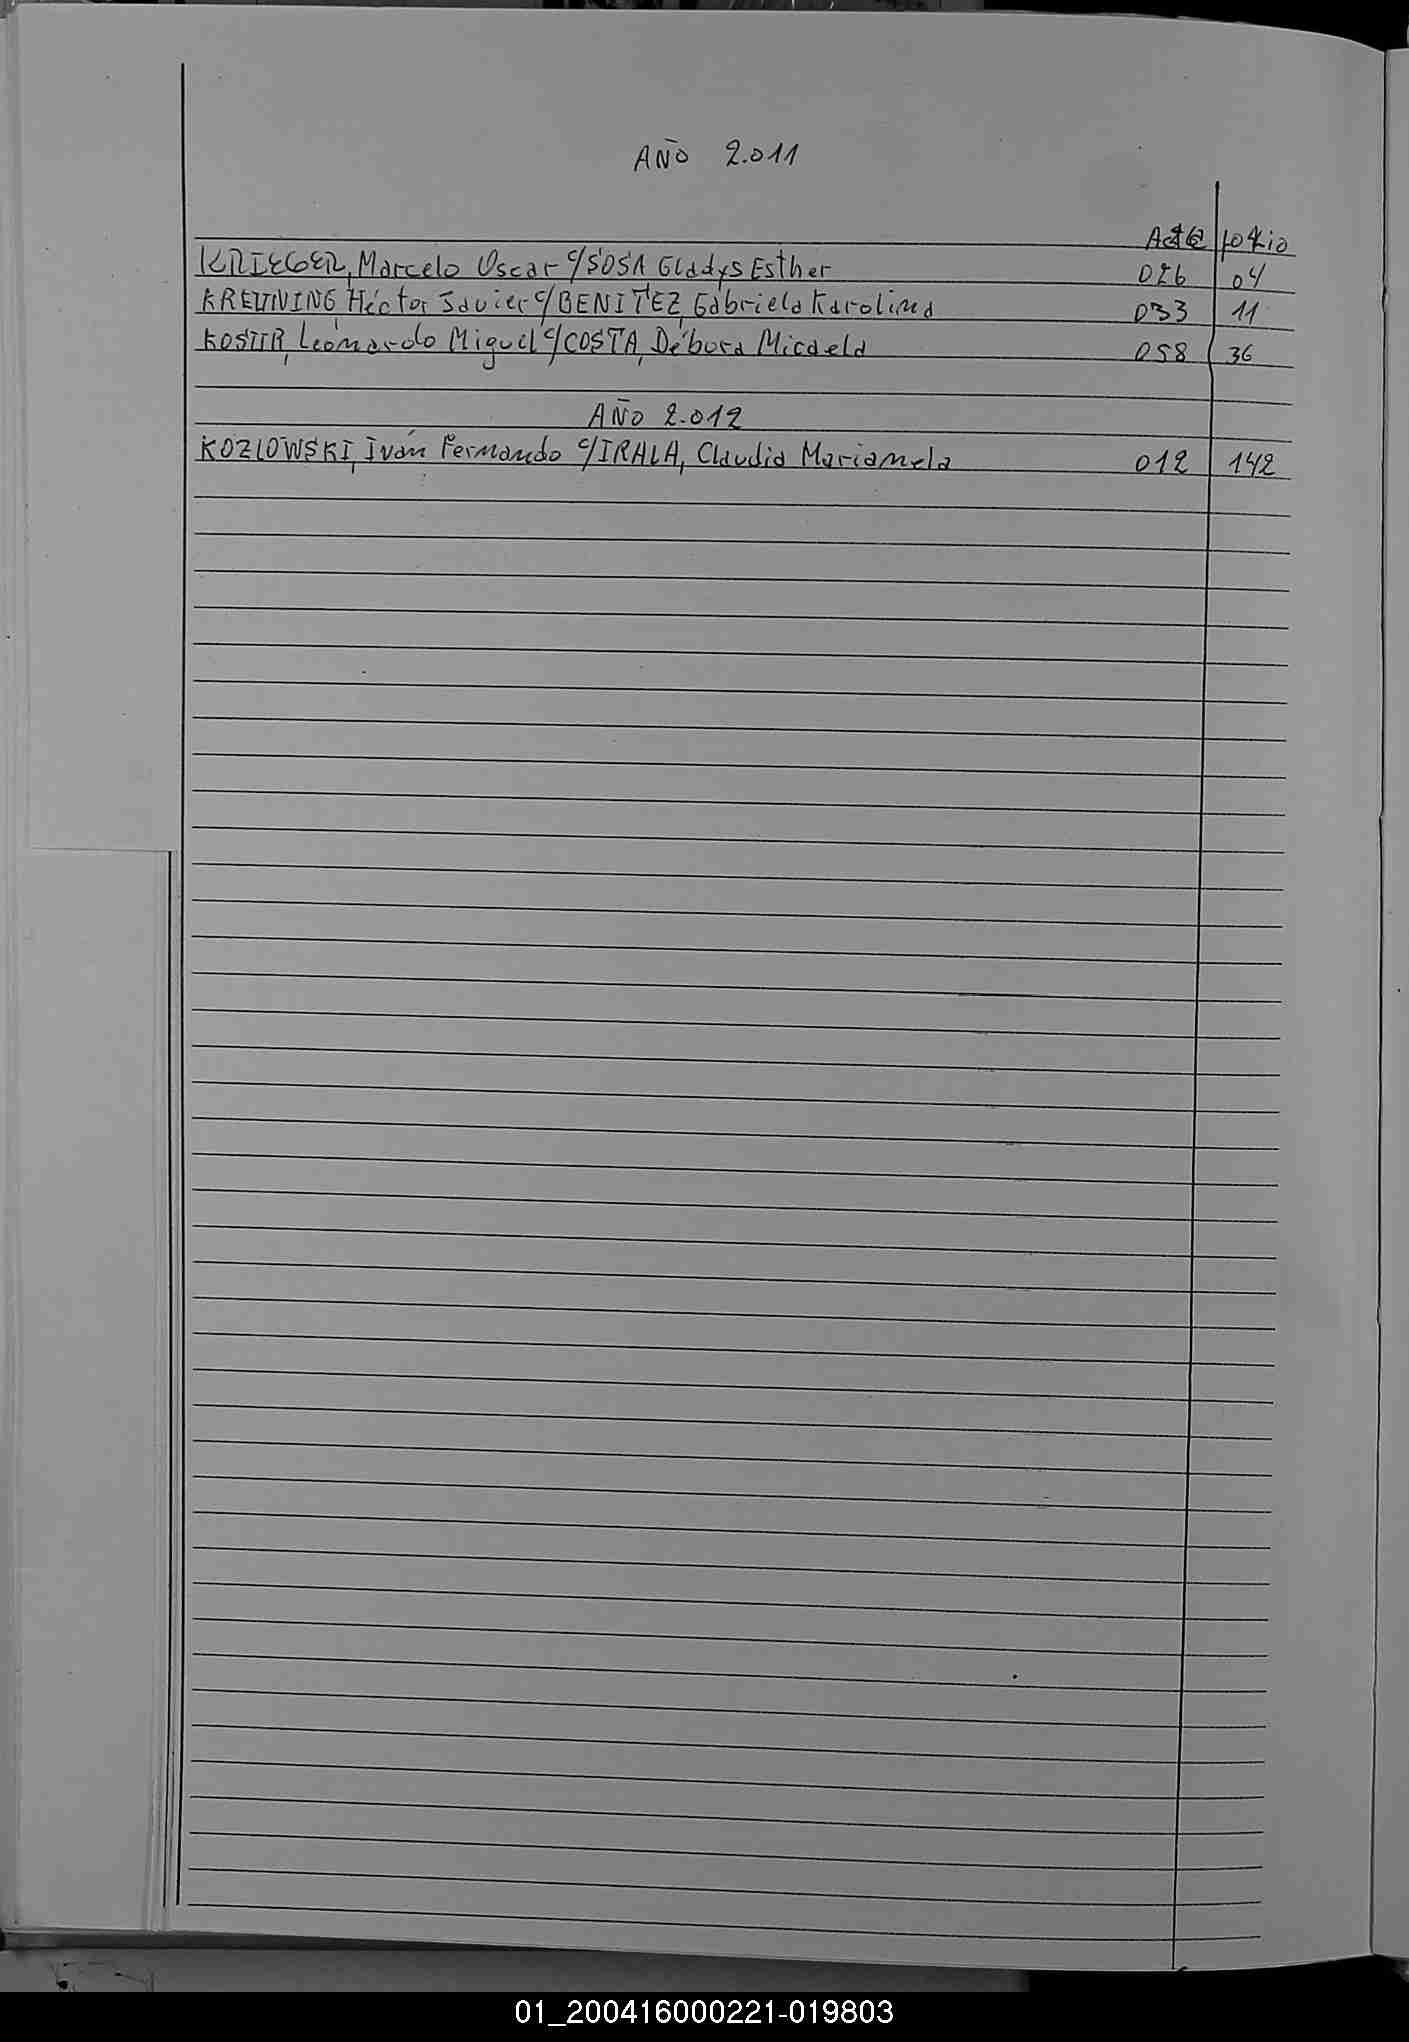 AÑO 2.011
Acta folio
KRIEGER, Marcelo Oscar c/SOSA Gladys Esther 026 04
KREUNING, Héctor Javier c/BENITEZ, Gabriela Karolina 033 11
Leonardo Miguel c/COSTA, Débora Micaela 058 36
AÑO 2.012
KOZLOWSKI, Iván Fernando c/IRALA, Claudia Marianela 012 142
01_200416000221-019803